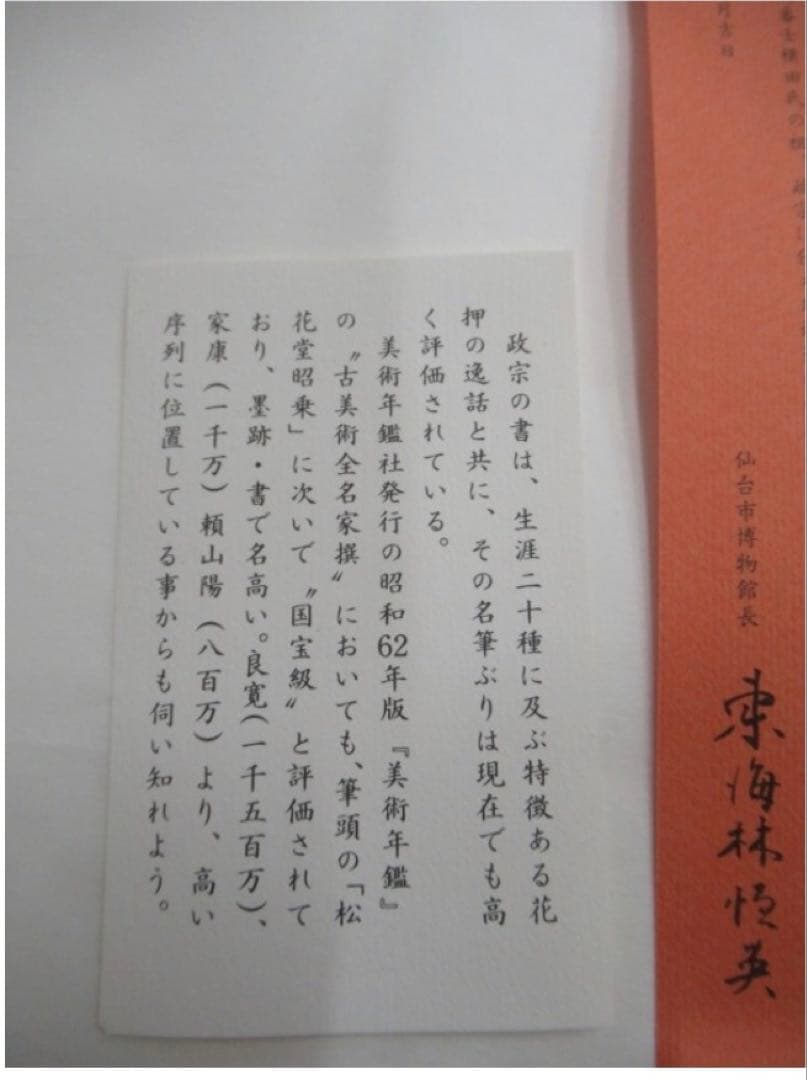 月吉日
仙台市博物館長
東海林恒英
政宗の書は、生涯二十種に及ぶ特徴ある花
押の逸話と共に、その名筆ぶりは現在でも高
く評価されている。
美術年鑑社発行の昭和62年版『美術年鑑』
の〝古美術全名家撰〟においても、筆頭の「松
花堂昭乗」に次いで〝国宝級〟と評価されて
おり、墨跡・書で名高い。良寛(一千五百万)、
家康(一千万)頼山陽(八百万)より、高い
序列に位置している事からも伺い知れよう。